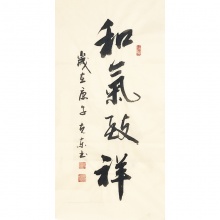 和氣致祥
歲在庚子